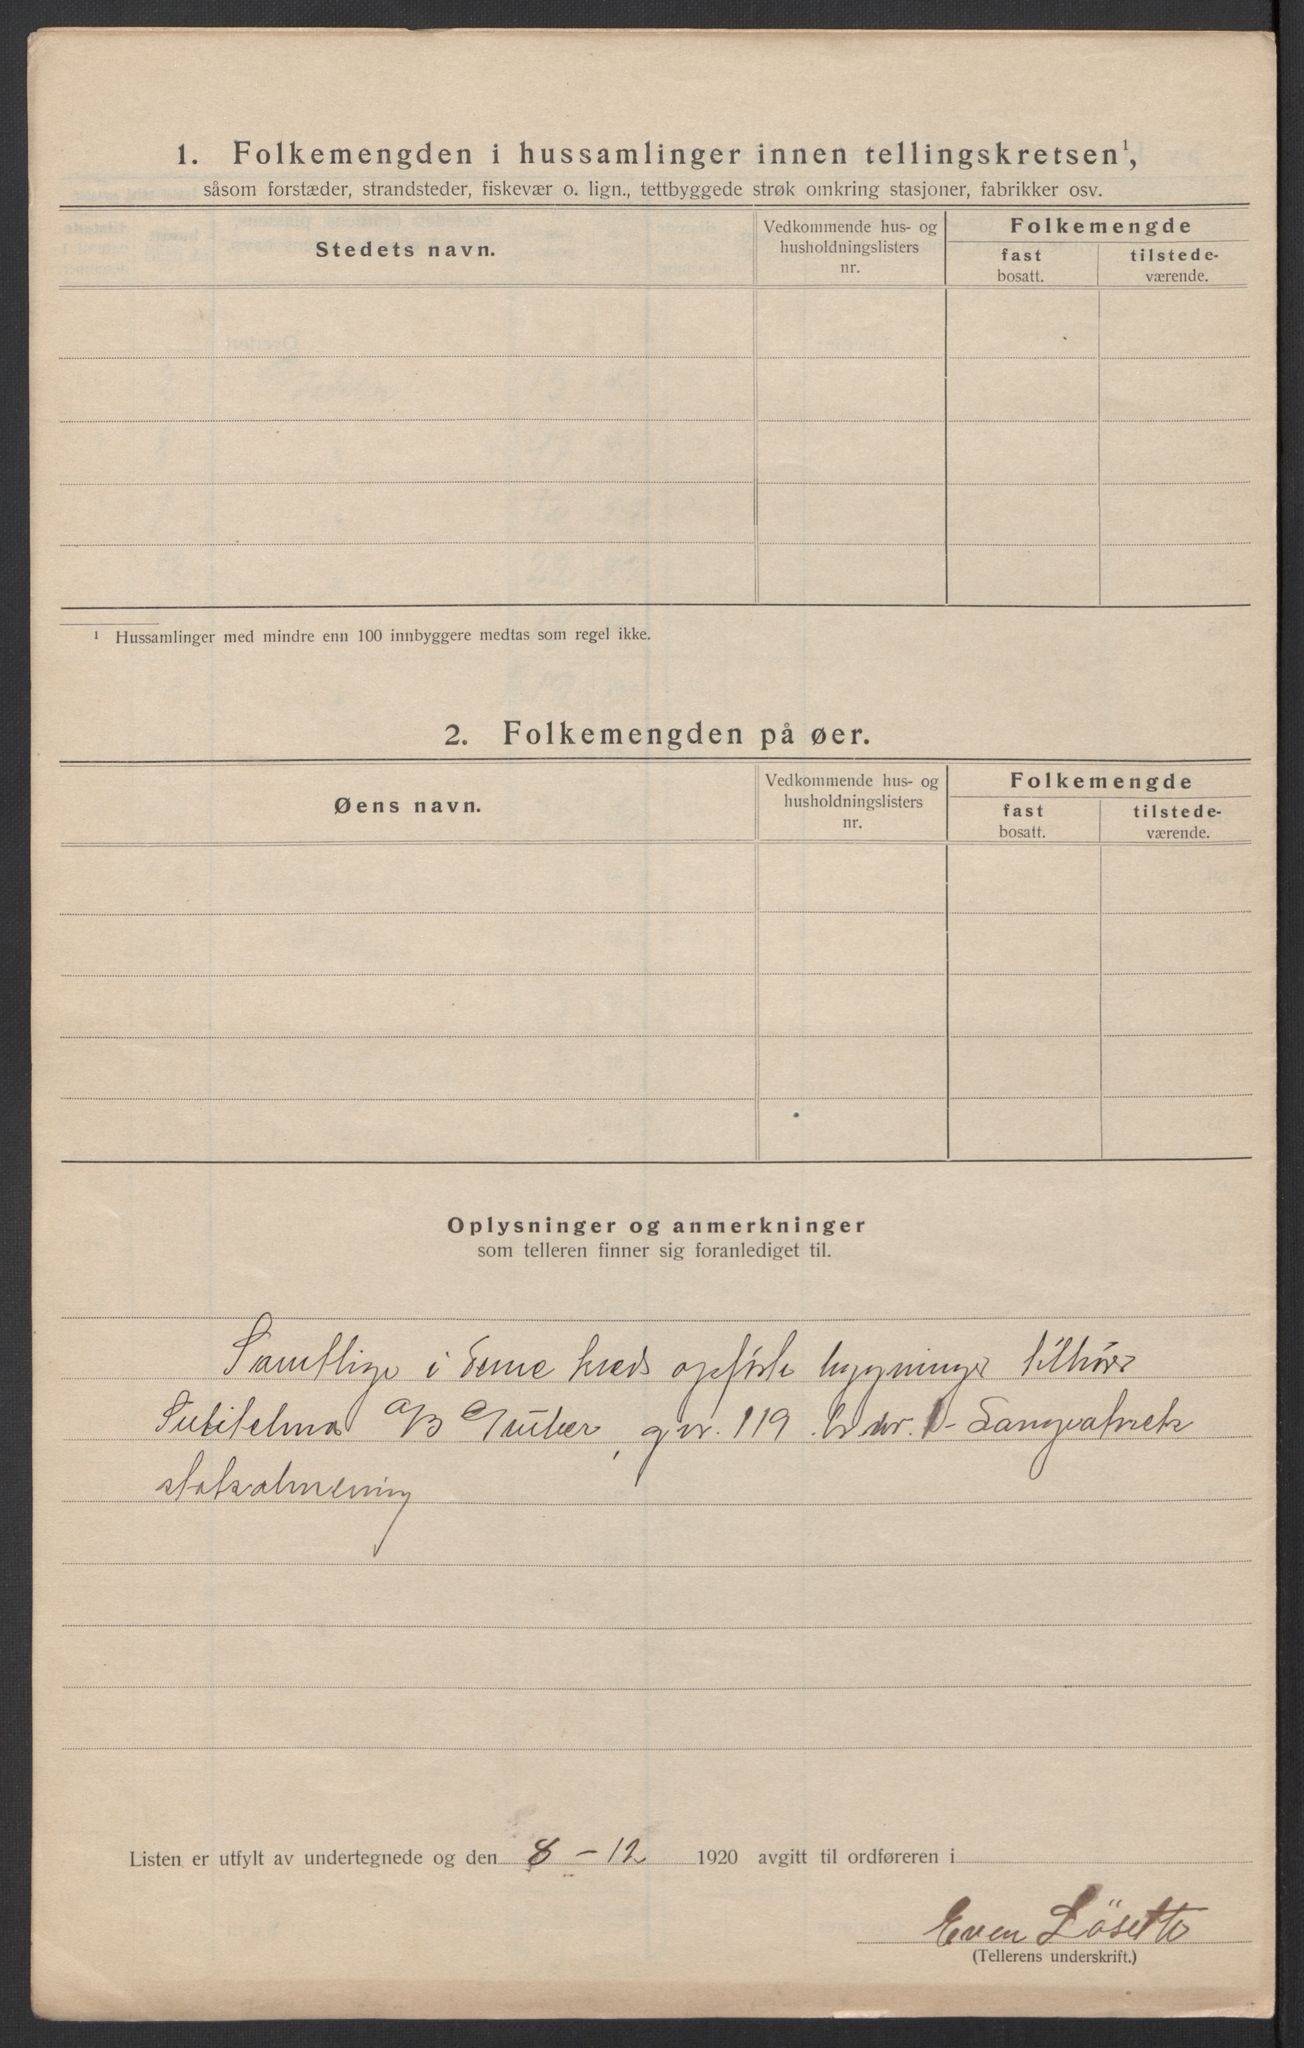 1. Folkemengden i hussamlinger innen tellingskretsen¹,
såsom forstæder, strandsteder, fiskevær o. lign., tettbyggede strøk omkring stasjoner, fabrikker osv.
Stedets navn.
Vedkommende hus- og
husholdningslisters
nr.
Folkemengde
fast
bosatt.
tilstede-
værende.
¹ Hussamlinger med mindre enn 100 innbyggere medtas som regel ikke.
2. Folkemengden på øer.
Øens navn.
Vedkommende hus- og
husholdningslisters
nr.
Folkemengde
fast
bosatt.
tilstede-
værende.
Oplysninger og anmerkninger
som telleren finner sig foranlediget til.
Samtlige i denne kreds opførte bygninger tilhører
Sulitelma A/B Gruber, gnr. 119 bnr. 1 - Langvatnets
statsalmenning
Listen er utfylt av undertegnede og den 8 - 12 1920 avgitt til ordføreren i
Even Löseth
(Tellerens underskrift.)